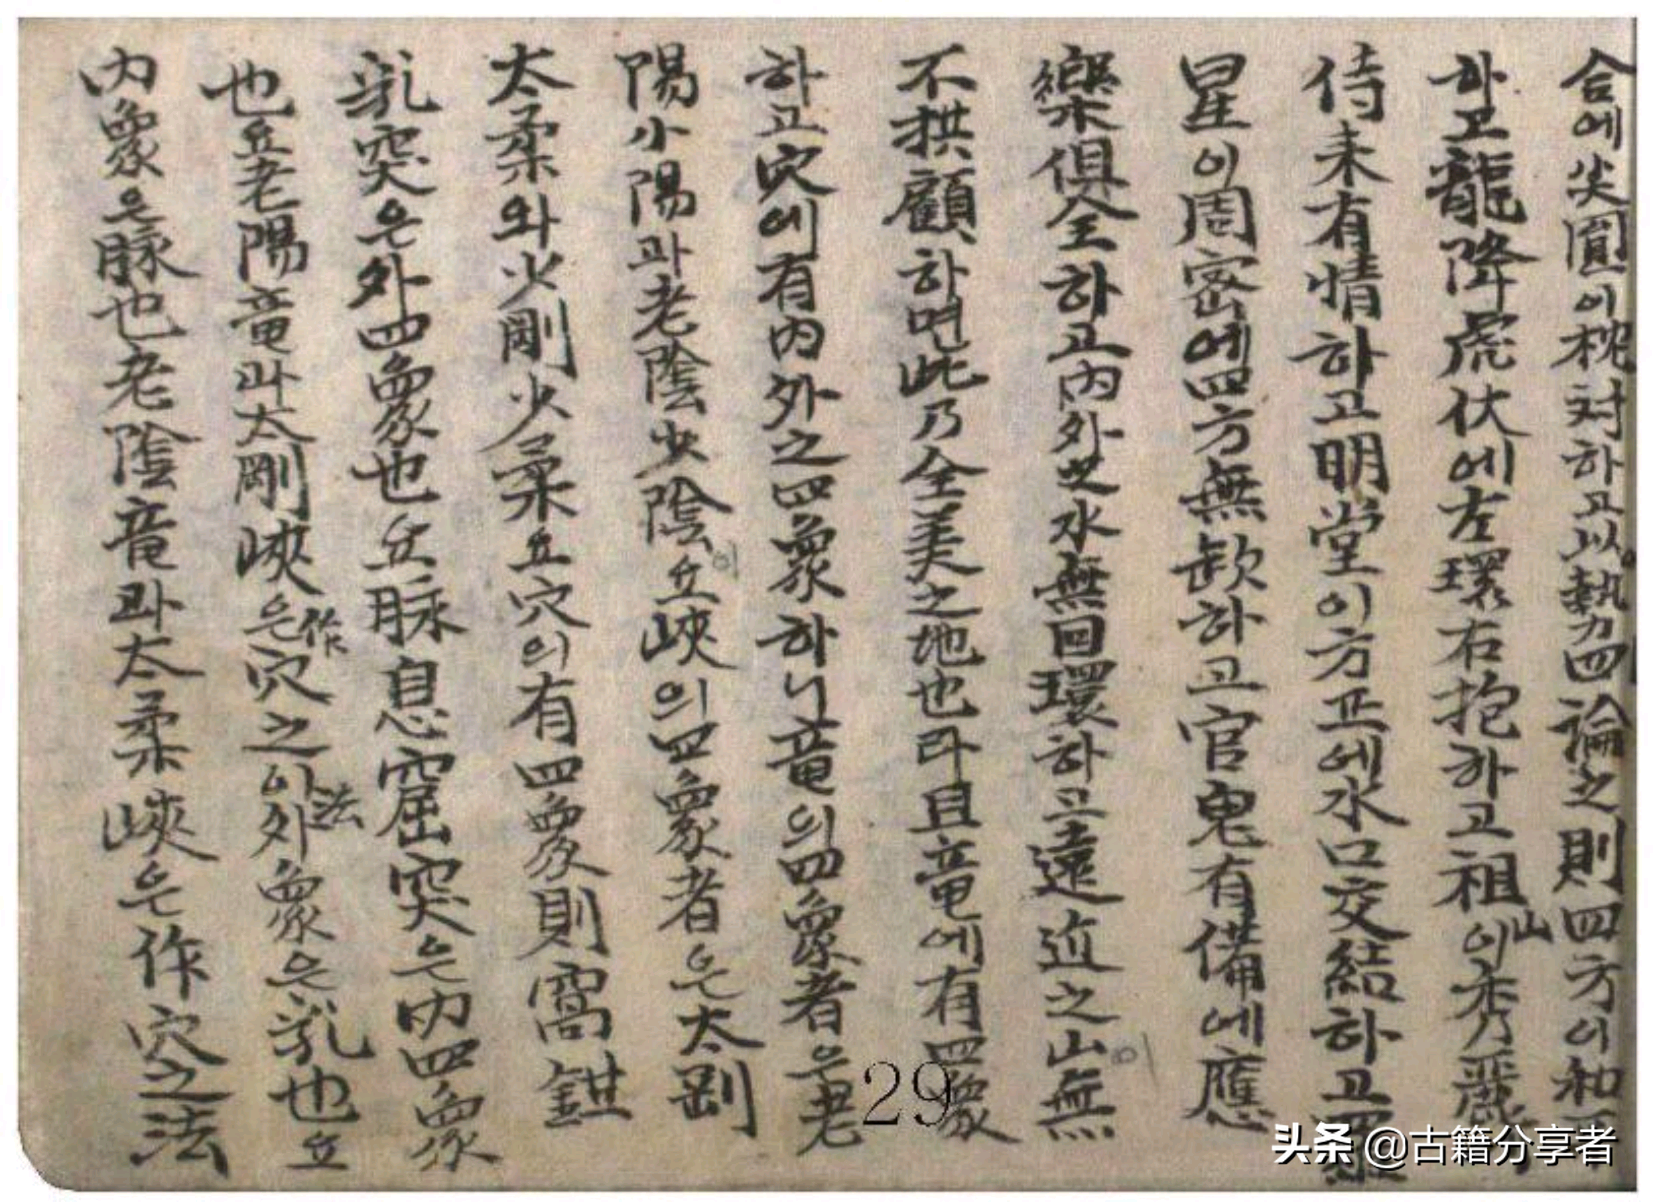 合에尖圓이枕対하고以勢力四論之則四方이和
하고龍降虎伏에左環右抱하고祖山이秀麗
侍未有情하고明堂이方正에水口交結하고
星이周密에四方無欠하고官鬼有備에應
樂俱全하고內外之水無回環하고遠近之山이無
不拱顧하면此乃全美之地也라且竜에有四象
하고穴에有內外之四象하니竜의四象者은老
陽小陽과老陰少陰이요峽의四象者은太剛
太柔와少剛少柔요穴의有四象則窩鉗
乳突은外四象也요脉息窟突은內四象
也요老陽竜과太剛峽은作穴之法이外象은乳也요
內象은脉也老陰竜과太柔峽은作穴之法
29
头条 @古籍分享者